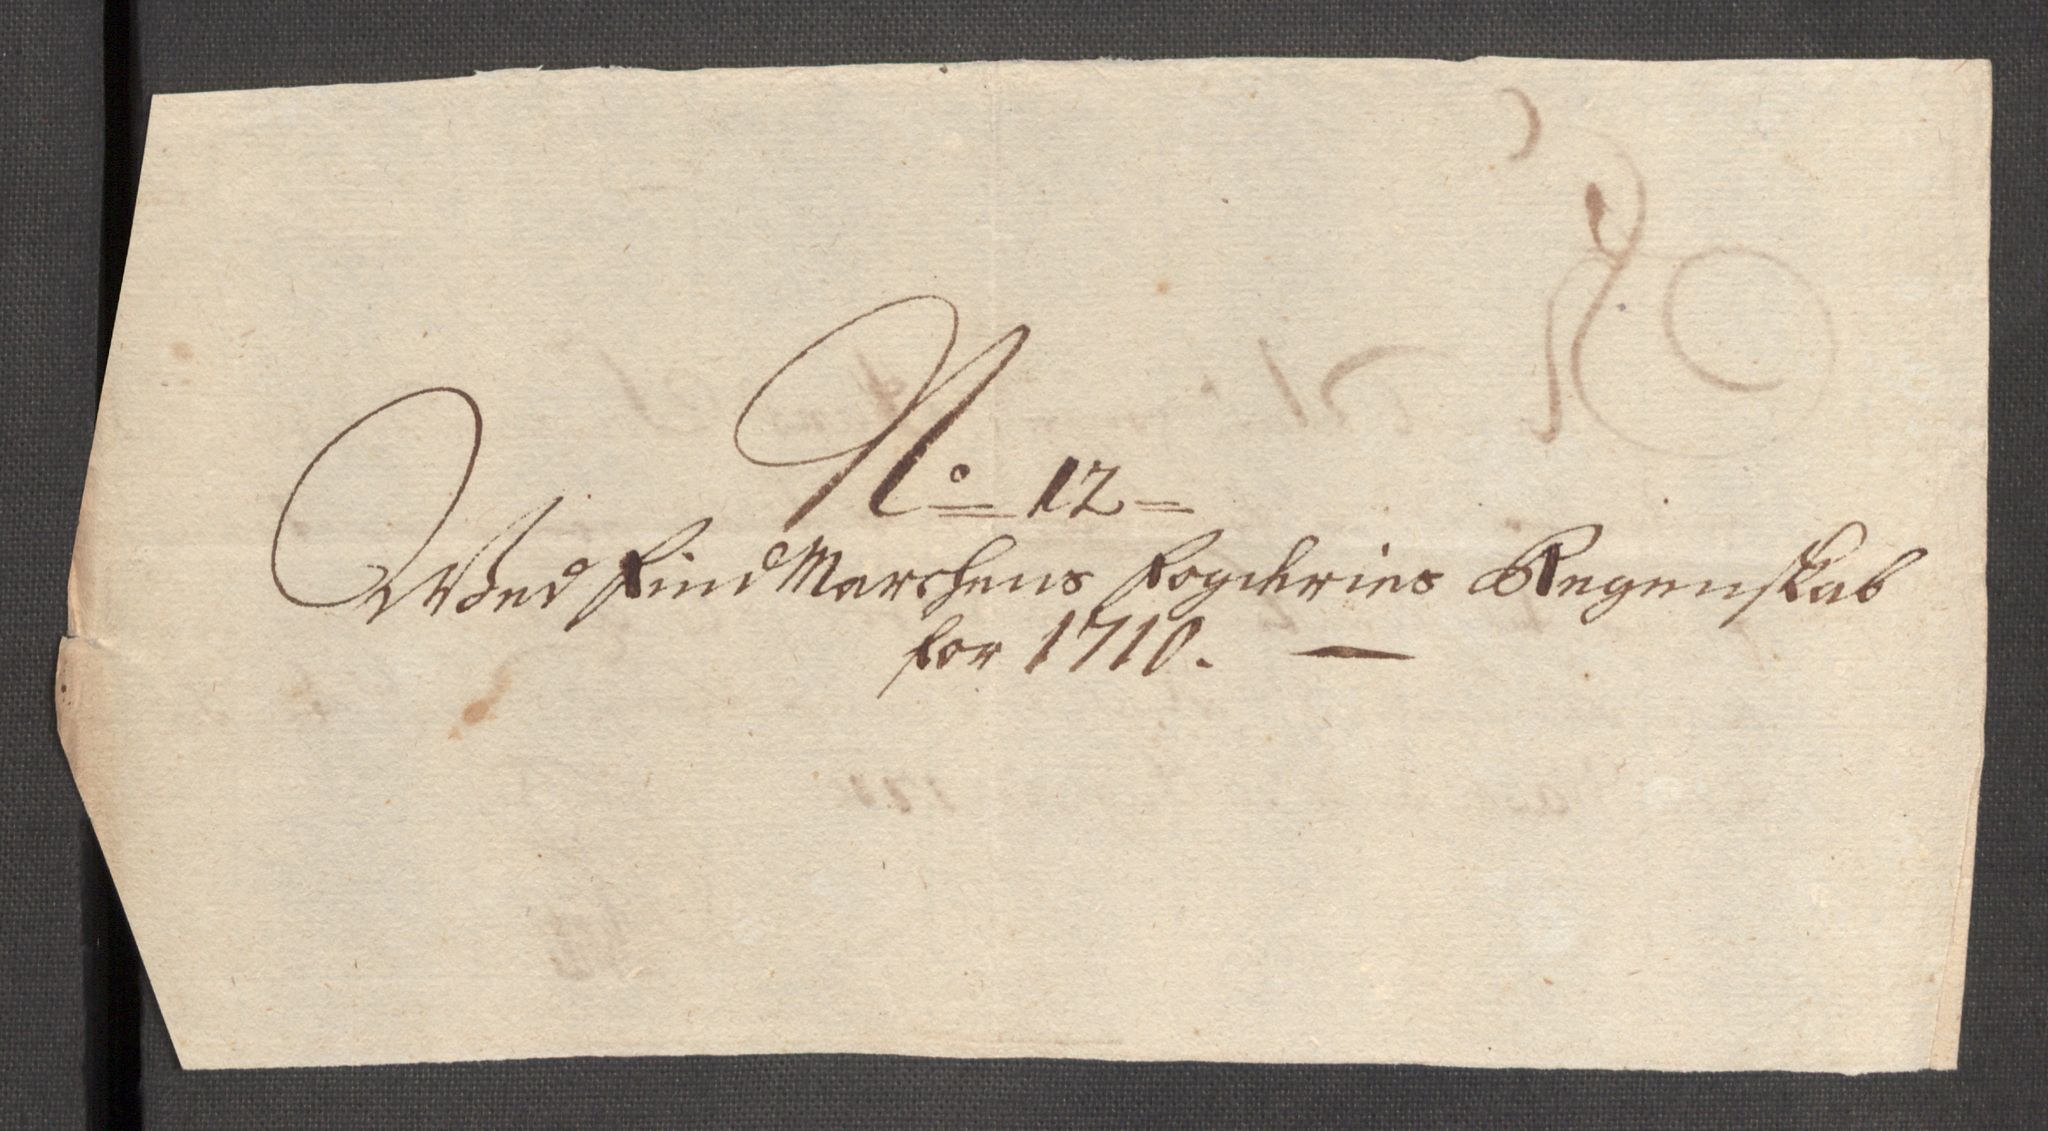 No 12
Wed FindMarchens Fogderies Regenskab
for 1710.